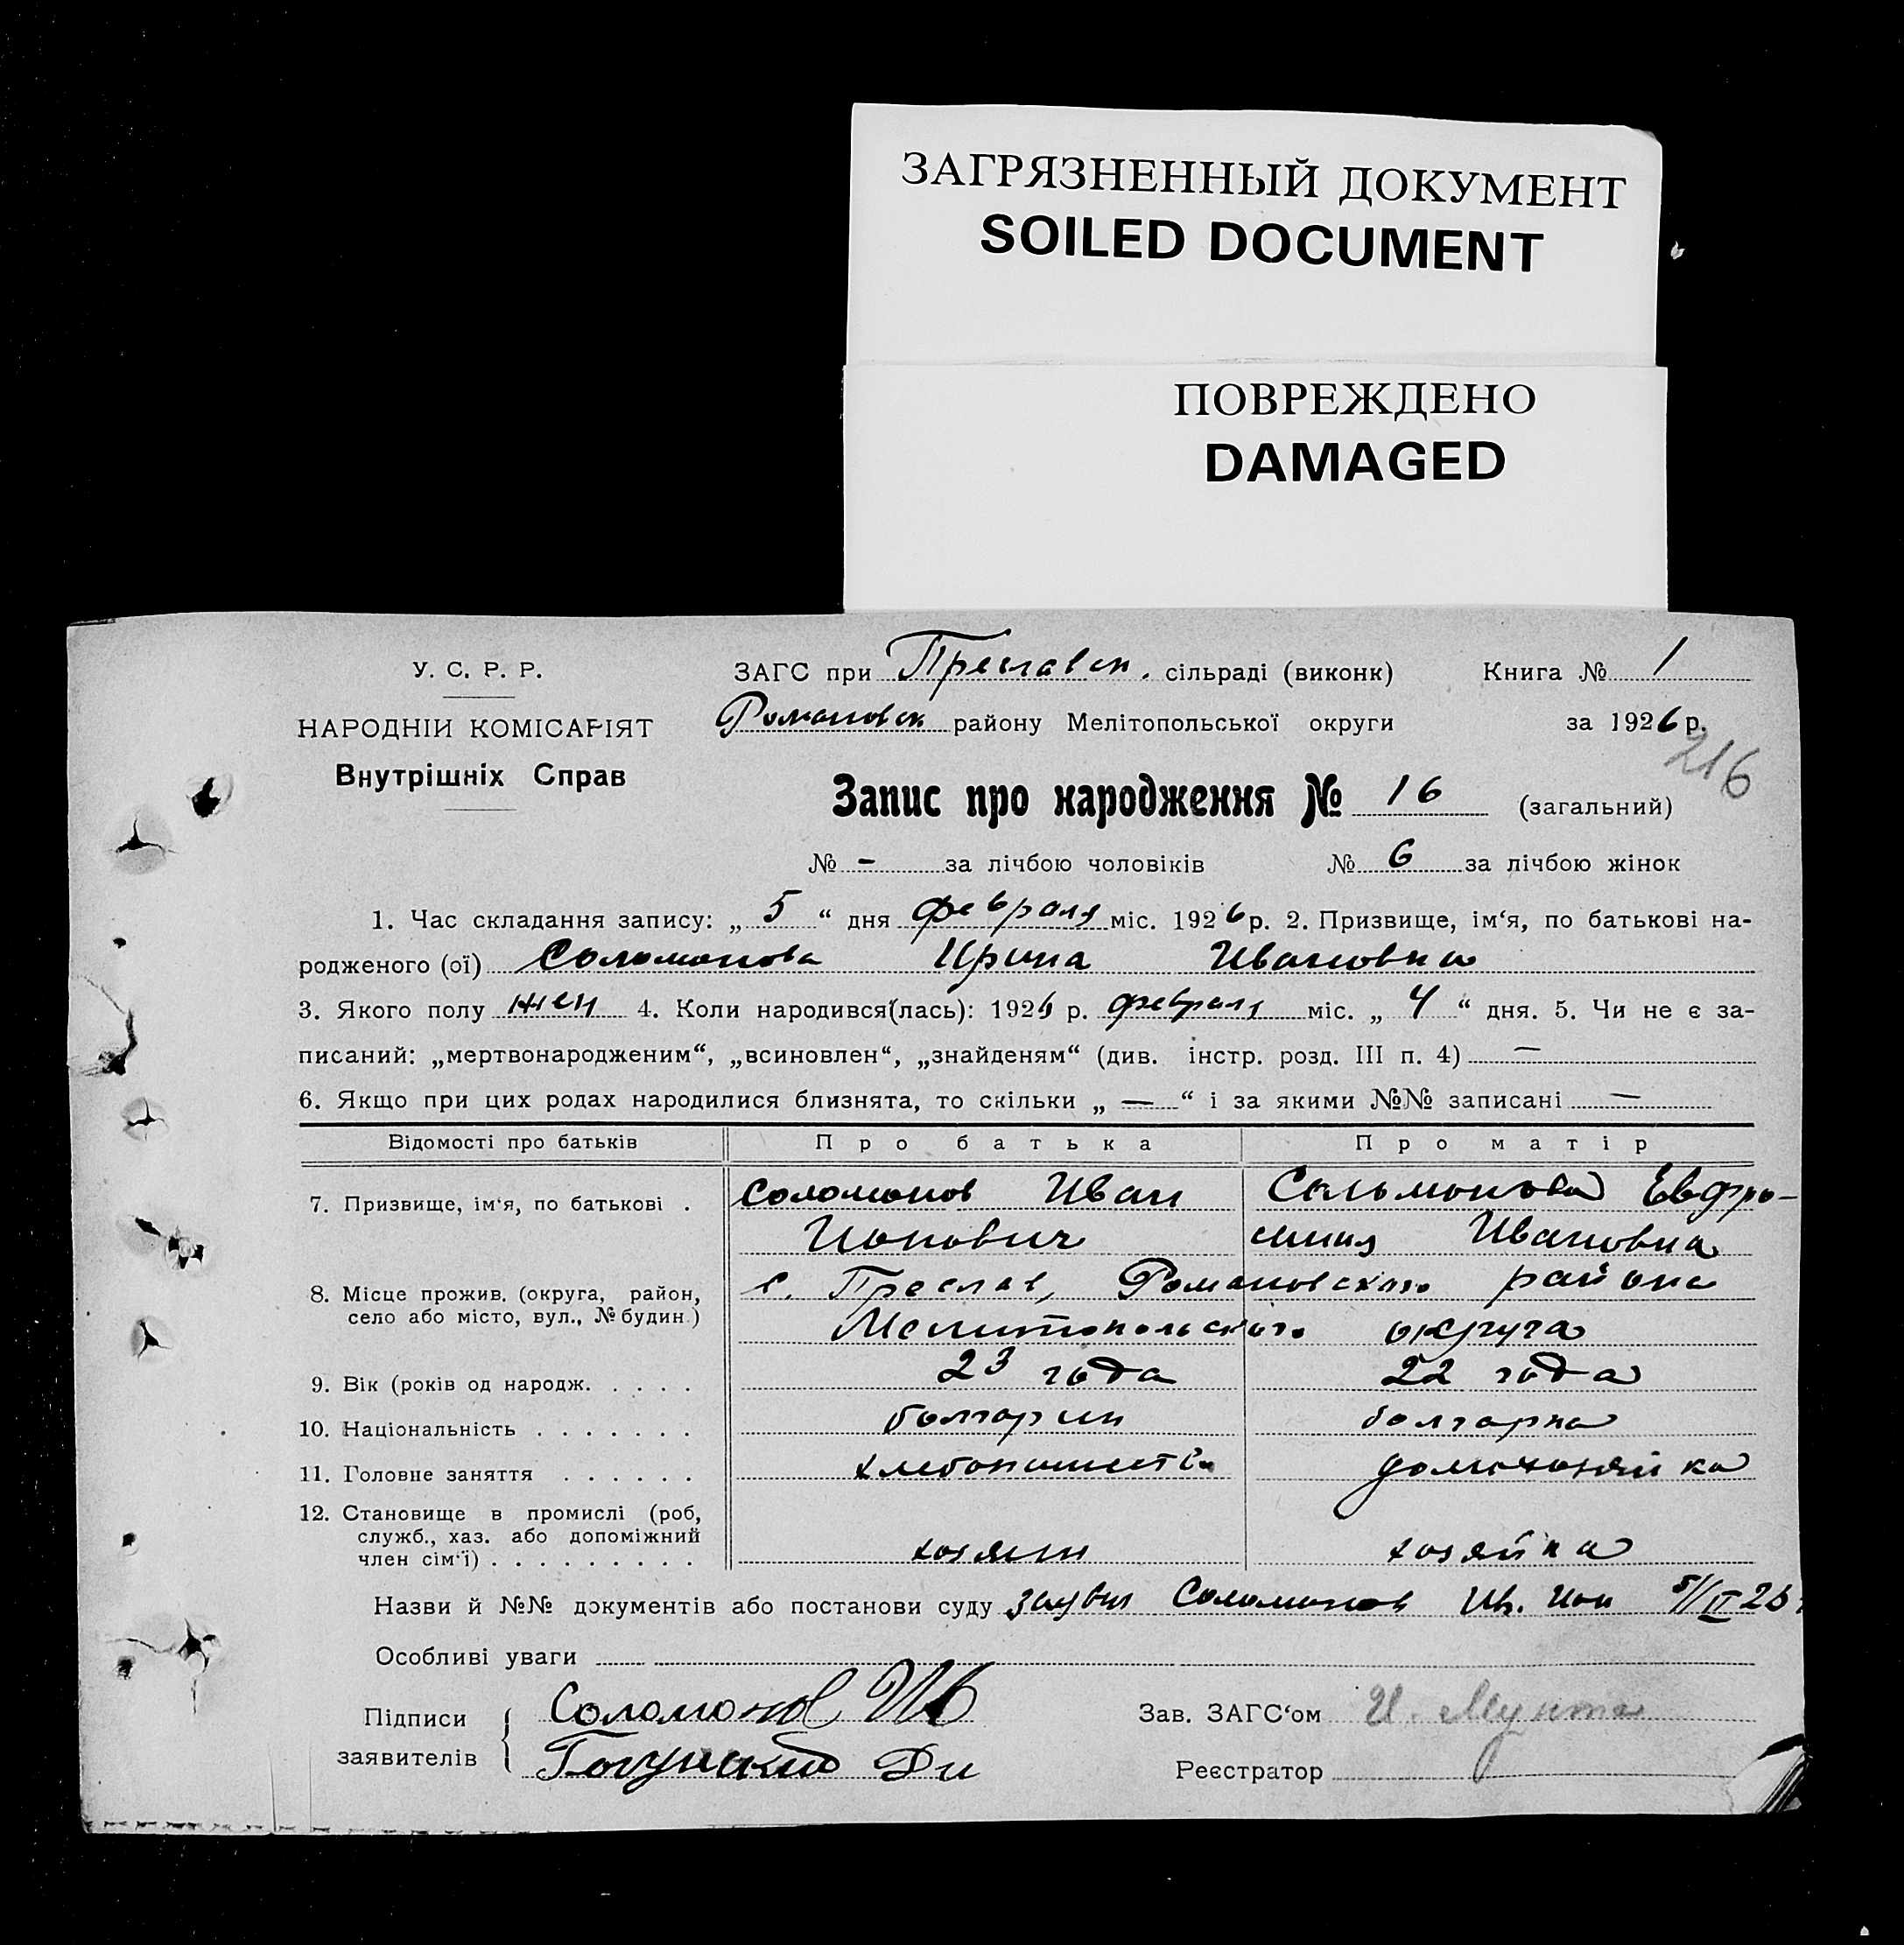 ЗАГРЯЗНЕННЫЙ ДОКУМЕНТ
SOILED DOCUMENT
ПОВРЕЖДЕНО
DAMAGED
У. С. Р. Р.
НАРОДНІИ КОМІСАРІЯТ
Внутрішніх Справ
ЗАГС при Преславск. сільраді (виконк) Книга № 1
Романовск району Мелітопольської округи за 1926 р.
216
Запис про народження № 16 (загальний)
№ - за лічбою чоловіків № 6 за лічбою жінок
1. Час складання запису: „ 5 “ дня февраля міс. 1926 р. 2. Призвище, ім‘я, по батькові на-
родженого (ої) Соломонова Ирина Ивановна
3. Якого полу жен 4. Коли народився(лась): 1926 р. февраля міс. „ 4 “ дня. 5. Чи не є за-
писаний: „мертвонародженим“, „всиновлен“, „знайденям“ (див. інстр. розд. III п. 4) —
6. Якщо при цих родах народилися близнята, то скільки „ — “ і за якими №№ записані —
Відомості про батьків Про батька Про матір
7. Призвище, ім‘я, по батькові . Соломонов Иван Соломонова Евфро-
Ионович синия Ивановна
8. Місце прожив. (округа, район, с. Преслав, Романовского района
село або місто, вул., № будин.) Мелитопольского округа
9. Вік (років од народж. . . . . 23 года 22 года
10. Національність . . . . . . . болгарин болгарка
11. Головне заняття . . . . . . хлебопашество домохозяйка
12. Становище в промислі (роб,
служб., хаз. або допоміжний
член сім‘ї) . . . . . . . . . хозяин хозяйка
Назви й №№ документів або постанови суду заявил Соломонов Ив. Ион 5/II 26
Особливі уваги
Підписи Соломонов Ив Зав. ЗАГС‘ом И.
заявителів Реєстратор